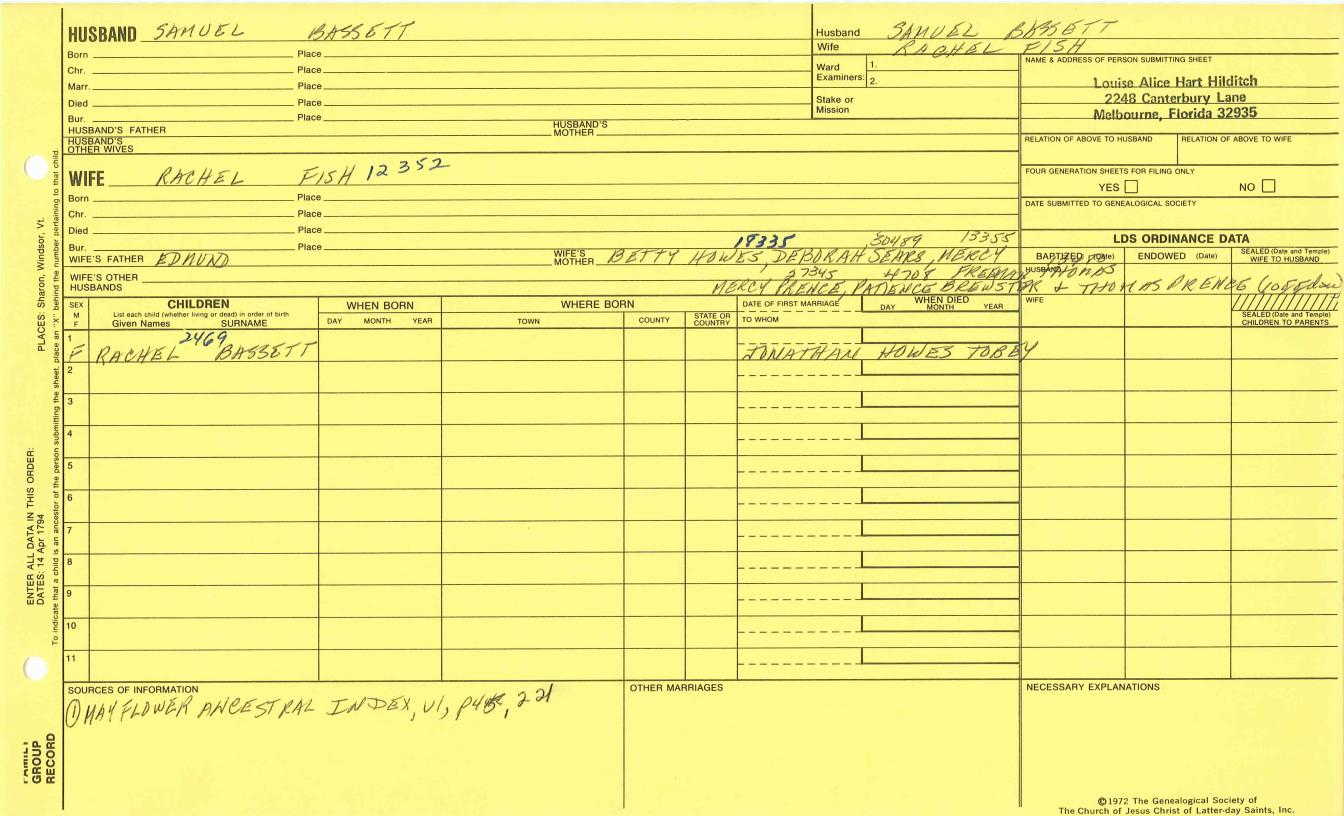 HUSBAND SAMUEL BASSETT
Born Place
Chr. Place
Marr. Place
Died Place
Bur. Place
HUSBAND'S FATHER HUSBAND'S MOTHER
HUSBAND'S OTHER WIVES
WIFE RACHEL FISH 12352
Born Place
Chr. Place
Died Place
Bur. Place
18335 30489 13355
WIFE'S FATHER EDMUND WIFE'S MOTHER BETTY HOWES, DEBORAH SEARS, MERCY
27345 4708 FREEMAN THOMAS
WIFE'S OTHER HUSBANDS MERCY PRENCE, PATIENCE BREWSTER & THOMAS PRENCE
Husband SAMUEL BASSETT
Wife RACHEL FISH
Ward Examiners: 1.
2.
Stake or Mission
NAME & ADDRESS OF PERSON SUBMITTING SHEET
Louise Alice Hart Hilditch
2248 Canterbury Lane
Melbourne, Florida 32935
RELATION OF ABOVE TO HUSBAND RELATION OF ABOVE TO WIFE
FOUR GENERATION SHEETS FOR FILING ONLY
YES NO
DATE SUBMITTED TO GENEALOGICAL SOCIETY
LDS ORDINANCE DATA
BAPTIZED (Date) ENDOWED (Date) SEALED (Date and Temple) WIFE TO HUSBAND
HUSBAND
WIFE
SEALED (Date and Temple) CHILDREN TO PARENTS
SEX M F
CHILDREN
List each child (whether living or dead) in order of birth
Given Names SURNAME
WHEN BORN
DAY MONTH YEAR
WHERE BORN
TOWN COUNTY STATE OR COUNTRY
DATE OF FIRST MARRIAGE
TO WHOM
WHEN DIED
DAY MONTH YEAR
1 2469
F RACHEL BASSETT JONATHAN HOWES TOBEY
2
3
4
5
6
7
8
9
10
11
SOURCES OF INFORMATION
① MAYFLOWER ANCESTRAL INDEX, V1, p45, 221
OTHER MARRIAGES
NECESSARY EXPLANATIONS
©1972 The Genealogical Society of
The Church of Jesus Christ of Latter-day Saints, Inc.
PLACES: Sharon, Windsor, Vt.
ENTER ALL DATA IN THIS ORDER:
DATES: 14 Apr 1794
To indicate that a child is an ancestor of the person submitting the sheet, place an "X" behind the number pertaining to that child.
FAMILY GROUP RECORD